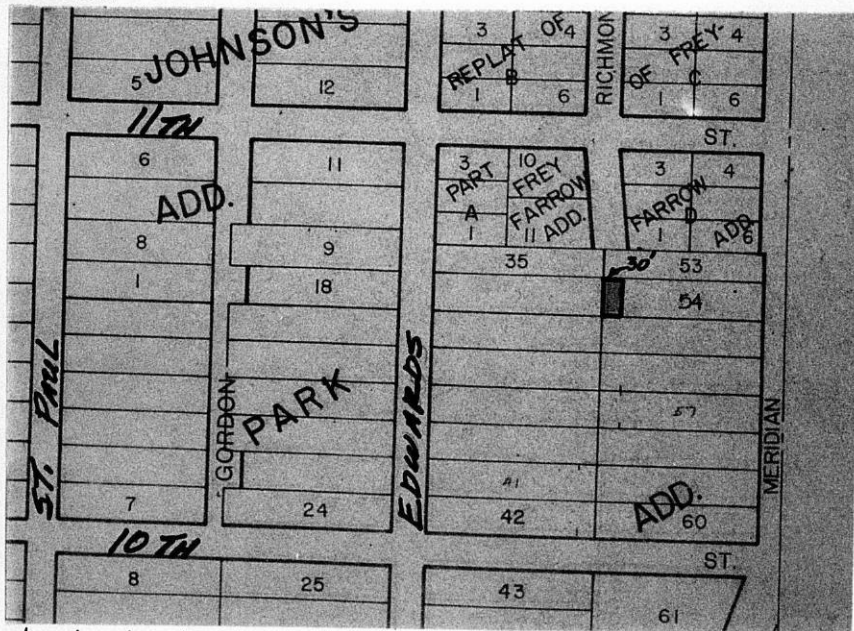 JOHNSON'S
5
12
3
4
REPLAT OF
B
1
6
RICHMON
3
4
OF FREY-
C
1
6
11TH
ST.
6
11
ADD.
8
9
1
18
3
10
PART
FREY
A
FARROW
1
11
ADD.
3
4
FARROW
D
1
ADD
6
35
30'
53
54
ST. PAUL
GORDON
PARK
EDWARDS
57
MERIDIAN
41
ADD.
7
24
42
60
10TH
ST.
8
25
43
61